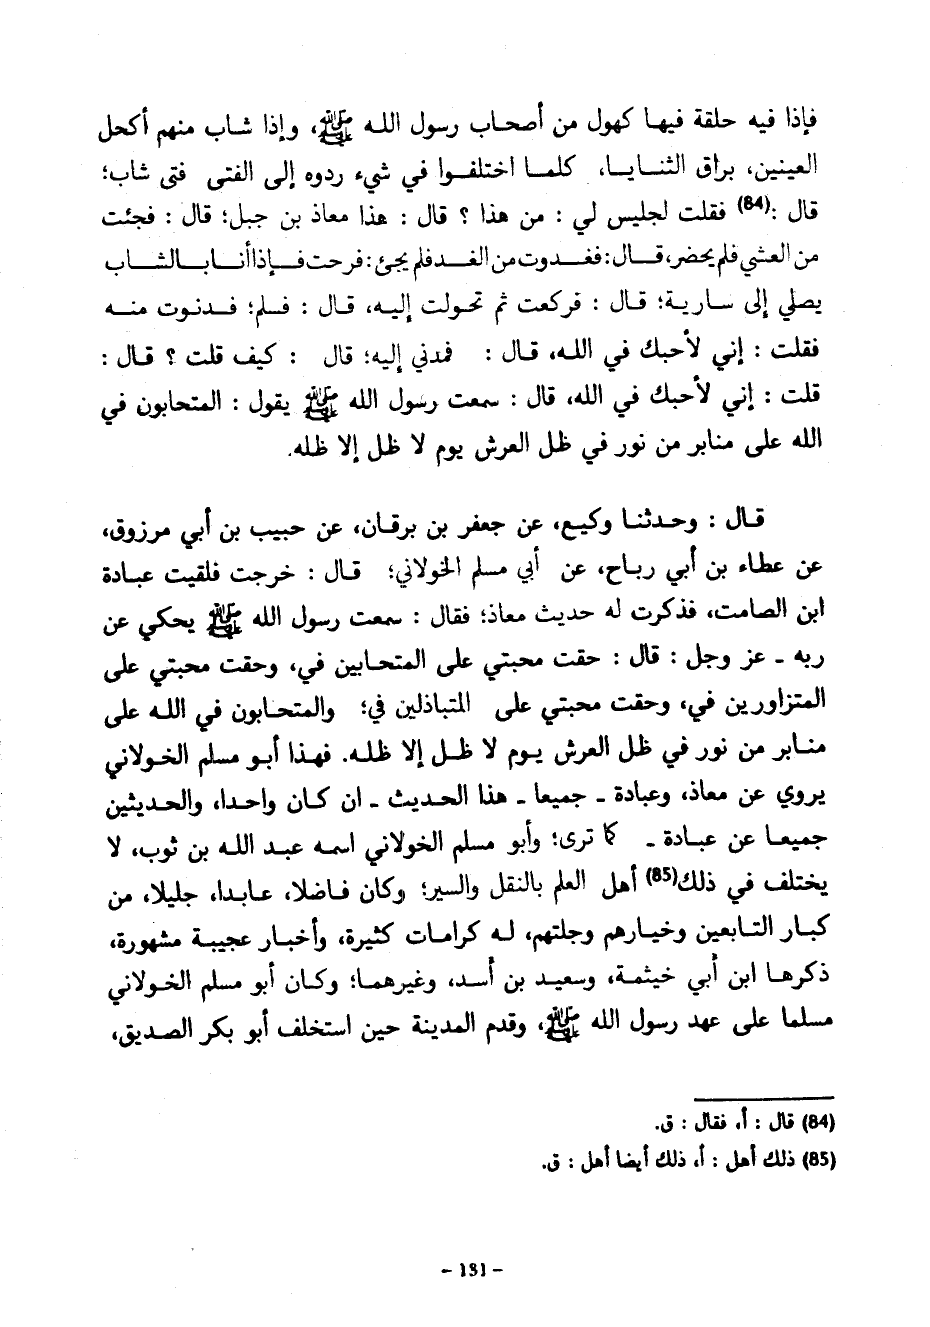 فإذا فيه حلقة فيها كهول من أصحاب رسول الله ﷺ، وإذا شاب منهم أكحل
العينين، براق الثنايا، كلما اختلفوا في شيء ردوه إلى الفتى فتى شاب؛
قال :(84) فقلت لجليس لي : من هذا ؟ قال : هذا معاذ بن جبل؛ قال : فجئت
من العشي فلم يحضر، قال: فغدوت من الغد فلم يجئ: فرحت فإذا أنا بالشاب
يصلي إلى سارية؛ قال : فركعت ثم تحولت إليه، قال : فلم؛ فدنوت منه
فقلت : إني لأحبك في الله، قال : فمدني إليه؛ قال : كيف قلت ؟ قال :
قلت : إني لأحبك في الله، قال : سمعت رسول الله ﷺ يقول : المتحابون في
الله على منابر من نور في ظل العرش يوم لا ظل إلا ظله.
قال : وحدثنا وكيع، عن جعفر بن برقان، عن حبيب بن أبي مرزوق،
عن عطاء بن أبي رباح، عن أبي مسلم الخولاني؛ قال : خرجت فلقيت عبادة
ابن الصامت، فذكرت له حديث معاذ؛ فقال : سمعت رسول الله ﷺ يحكي عن
ربه ـ عز وجل : قال : حقت محبتي على المتحابين في، وحقت محبتي على
المتزاورين في، وحقت محبتي على المتباذلين في؛ والمتحابون في الله على
منابر من نور في ظل العرش يوم لا ظل إلا ظله. فهذا أبو مسلم الخولاني
يروي عن معاذ، وعبادة ـ جميعا ـ هذا الحديث ـ ان كان واحدا، والحديثين
جميعا عن عبادة ـ كما ترى؛ وأبو مسلم الخولاني اسمه عبد الله بن ثوب، لا
يختلف في ذلك(85) أهل العلم بالنقل والسير؛ وكان فاضلا، عابدا، جليلا، من
كبار التابعين وخيارهم وجلتهم، له كرامات كثيرة، وأخبار عجيبة مشهورة،
ذكرها ابن أبي خيثمة، وسعيد بن أسد، وغيرهما؛ وكان أبو مسلم الخولاني
مسلما على عهد رسول الله ﷺ، وقدم المدينة حين استخلف أبو بكر الصديق،
(84) قال : أ، فقال : ق.
(85) ذلك أهل : أ، ذلك أيضا أهل : ق.
- 131 -